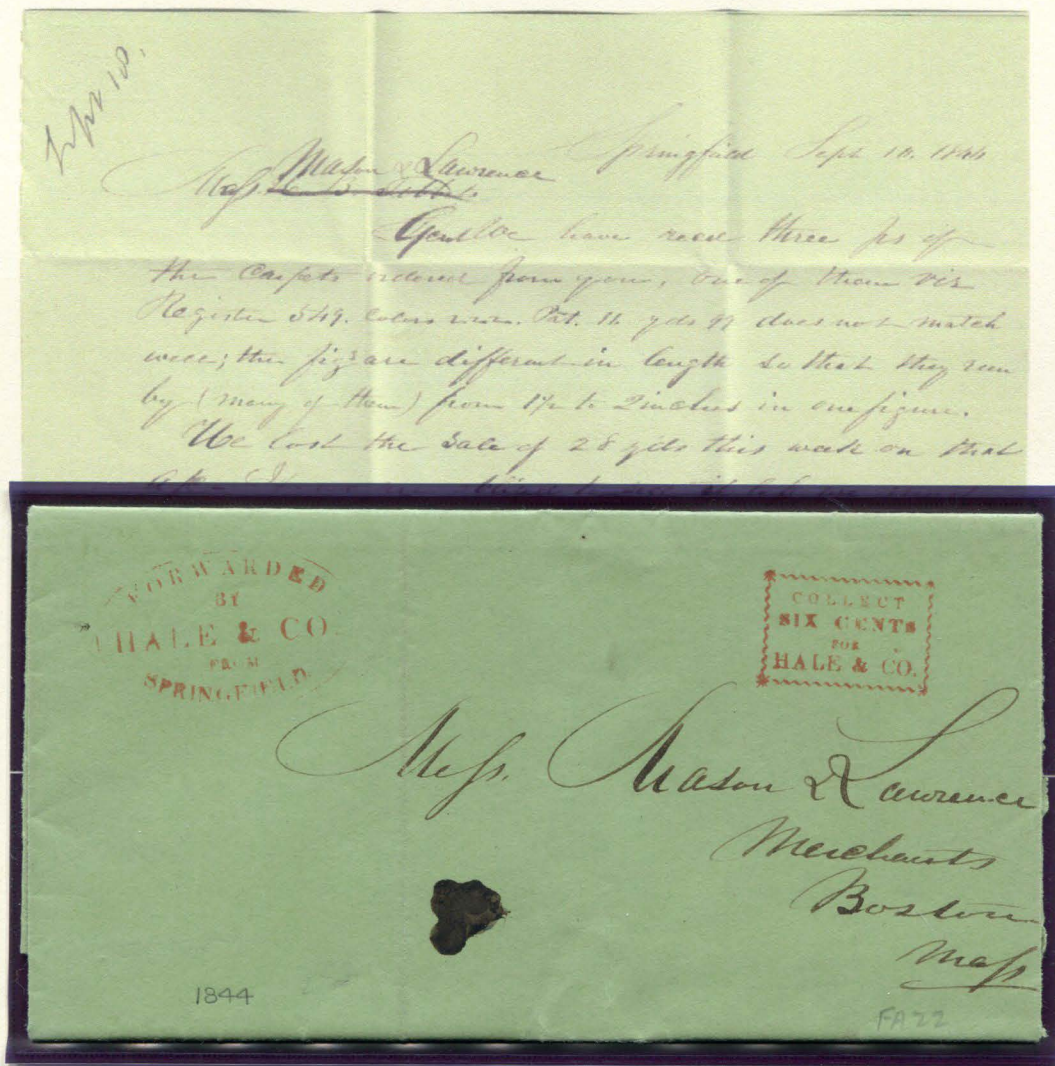 Sept 10.
Springfield Sept 10. 1844
Mason & Lawrence
Mess.
Gent We have recd three ps of
the Carpets ordered from you, one of them viz
Register 549. colors Pat. 16 yds 99 does not match
well; the figs are different in length so that they run
by (many of them) from 1½ to 2 inches in one figure.
We lost the Sale of 28 yds this week on that
FORWARDED
BY
HALE & CO.
FROM
SPRINGFIELD
COLLECT
SIX CENTS
FOR
HALE & CO.
Mess. Mason & Lawrence
Merchants
Boston
Mass
1844
FA22